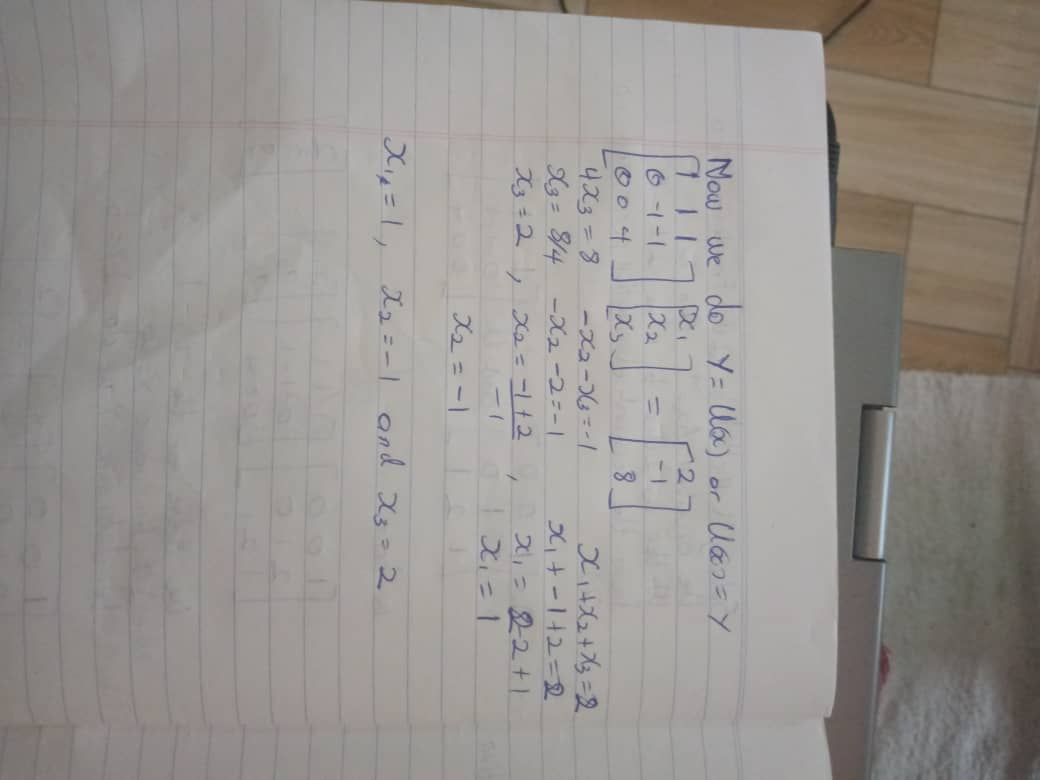 Now we do Y = U(x) or U(x) = Y
[1 1 1] [x₁] [2]
[0 -1 -1] [x₂] = [-1]
[0 0 4] [x₃] [8]
4x₃ = 8 -x₂-x₃=-1 x₁+x₂+x₃=2
x₃ = 8/4 -x₂-2=-1 x₁+-1+2=2
x₃=2, x₂ = -1+2, x₁ = 2-2+1
-1 x₁ = 1
x₂ = -1
x₁ = 1, x₂ = -1 and x₃ = 2